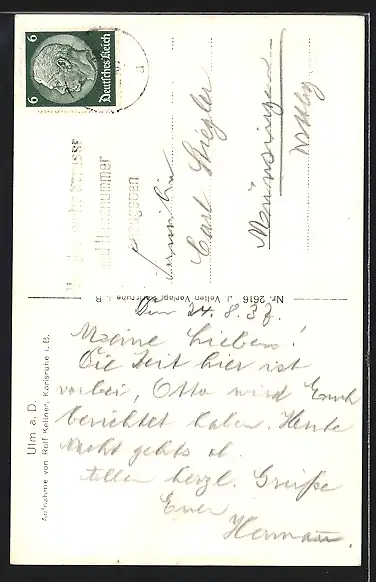 6 6
Deutsches Reich
Straße
und Hausnummer
angeben
Familie
Carl Stiegler
Münsingen
Nr. 2616 J. Velten Verlag, Karlsruhe i. B.
Ulm a. D.
Aufnahme von Rolf Kellner, Karlsruhe i. B.
Den 24.8.37.
Meine Lieben!
Die Zeit hier ist
vorbei, Otto wird Euch
berichtet haben. Heute
Nacht gehts ab.
Allen herzl. Grüße
Euer
Hermann.